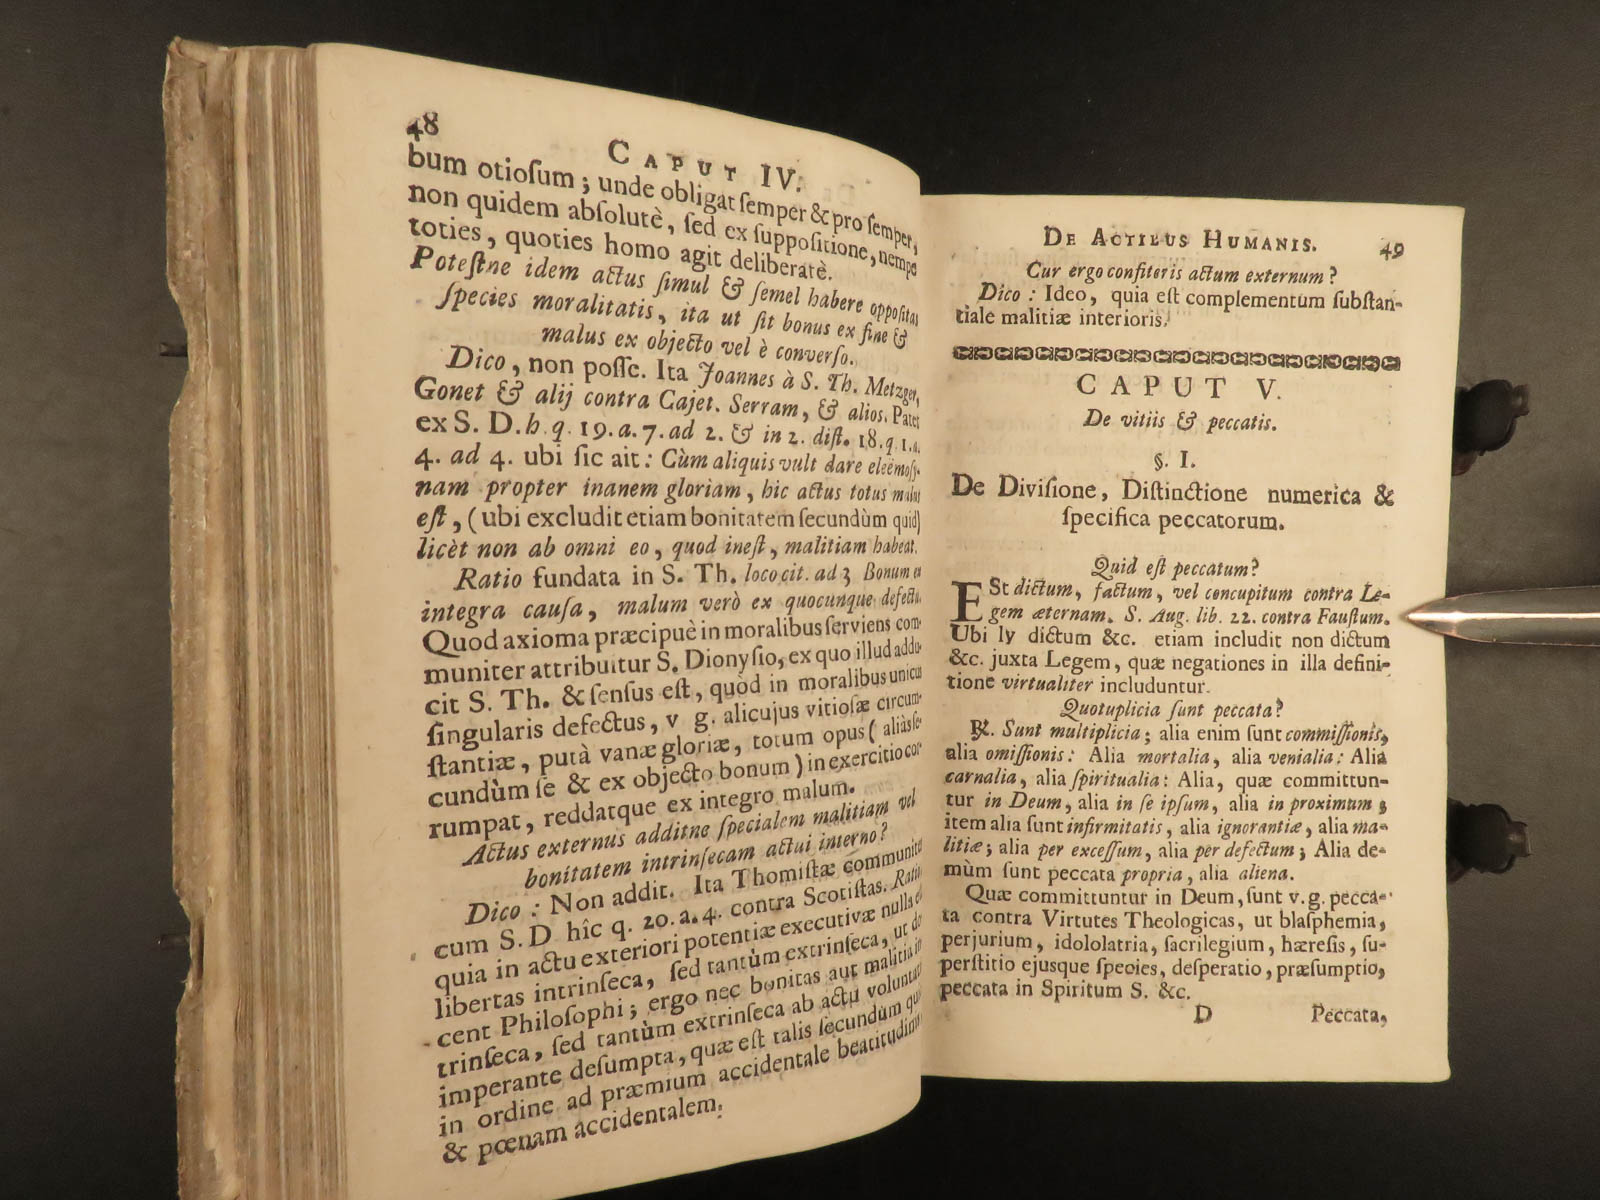 48
CAPUT IV.
bum otioſum ; unde obligat ſemper & pro ſemper,
non quidem abſolutè, ſed ex ſuppoſitione, nempe
toties, quoties homo agit deliberatè.
Poteſtne idem actus ſimul & ſemel habere oppoſitas
ſpecies moralitatis, ita ut ſit bonus ex fine &
malus ex objecto vel è converſo.
Dico, non poſſe. Ita Joannes à S. Th. Metzger,
Gonet & alij contra Cajet. Serram, & alios. Patet
ex S. D. h. q. 19. a. 7. ad 2. & in 2. diſt. 18. q. 1. a.
4. ad 4. ubi ſic ait: Cùm aliquis vult dare eleëmoſy-
nam propter inanem gloriam, hic actus totus malus
eſt, (ubi excludit etiam bonitatem ſecundùm quid)
licèt non ab omni eo, quod ineſt, malitiam habeat.
Ratio fundata in S. Th. loco cit. ad 3 Bonum ex
integra cauſa, malum verò ex quocunque defectu.
Quod axioma præcipuè in moralibus ſerviens com-
muniter attribuitur S. Dionyſio, ex quo illud addu-
cit S. Th. & ſenſus eſt, quòd in moralibus unicus
ſingularis defectus, v g. alicujus vitioſæ circum-
ſtantiæ, putà vanæ gloriæ, totum opus ( aliàs ſe-
cundùm ſe & ex objecto bonum ) in exercitio cor-
rumpat, reddatque ex integro malum.
Actus externus additne ſpecialem malitiam vel
bonitatem intrinſecam actui interno?
Dico : Non addit. Ita Thomiſtæ communiter
cum S. D hîc q. 20. a. 4. contra Scotiſtas. Ratio
quia in actu exteriori potentiæ executivæ nulla eſt
libertas intrinſeca, ſed tantùm extrinſeca, ut do-
cent Philoſophi; ergo nec bonitas aut malitia in-
trinſeca, ſed tantùm extrinſeca ab actu voluntatis
imperante deſumpta, quæ eſt talis ſecundùm quid
in ordine ad præmium accidentale beatitudinis
& pœnam accidentalem.
DE ACTIBUS HUMANIS. 49
Cur ergo confiteris actum externum ?
Dico : Ideo, quia eſt complementum ſubſtan-
tiale malitiæ interioris.
CAPUT V.
De vitiis & peccatis.
§. I.
De Diviſione, Diſtinctione numerica &
ſpecifica peccatorum.
Quid eſt peccatum?
ESt dictum, factum, vel concupitum contra Le-
gem æternam. S. Aug. lib. 22. contra Fauſtum.
Ubi ly dictum &c. etiam includit non dictum
&c. juxta Legem, quæ negationes in illa defini-
tione virtualiter includuntur.
Quotuplicia ſunt peccata?
℞. Sunt multiplicia; alia enim ſunt commiſſionis,
alia omiſſionis: Alia mortalia, alia venialia: Alia
carnalia, alia ſpiritualia: Alia, quæ committun-
tur in Deum, alia in ſe ipſum, alia in proximum ;
item alia ſunt infirmitatis, alia ignorantiæ, alia ma-
litiæ; alia per exceſſum, alia per defectum; Alia de-
mùm ſunt peccata propria, alia aliena.
Quæ committuntur in Deum, ſunt v. g. pecca-
ta contra Virtutes Theologicas, ut blaſphemia,
perjurium, idololatria, ſacrilegium, hæreſis, ſu-
perſtitio ejusque ſpecies, deſperatio, præſumptio,
peccata in Spiritum S. &c.
D Peccata,